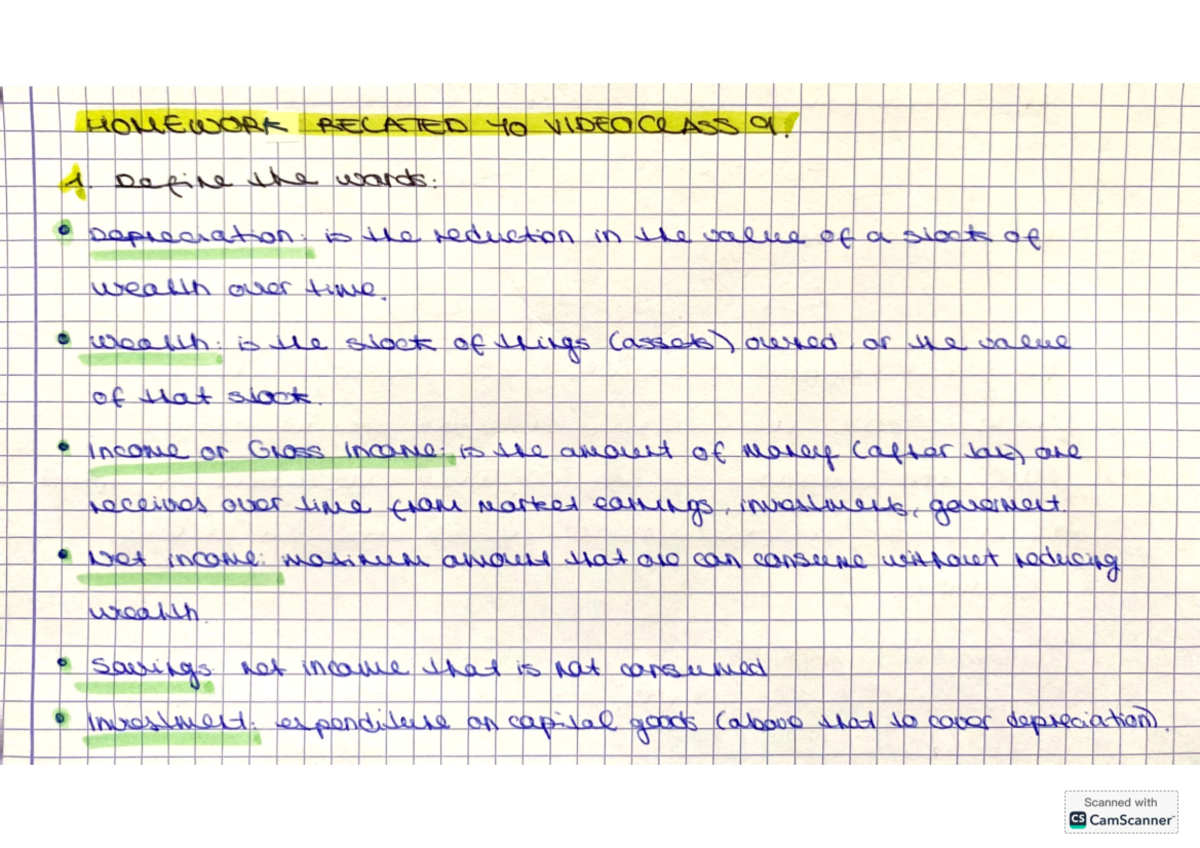 HOMEWORK RELATED TO VIDEOCLASS 9!
1. Define the words:
• Depreciation: is the reduction in the value of a stock of
wealth over time.
• Wealth: is the stock of things (assets) owned, or the value
of that stock.
• Income or Gross income: is the amount of money (after tax) one
receives over time from market earnings, investments, goverment.
• Net income: maximum amount that one can consume without reducing
wealth.
• Savings: net income that is not consumed
• Investment: expenditure on capital goods (above that to cover depreciation).
Scanned with
CS CamScanner